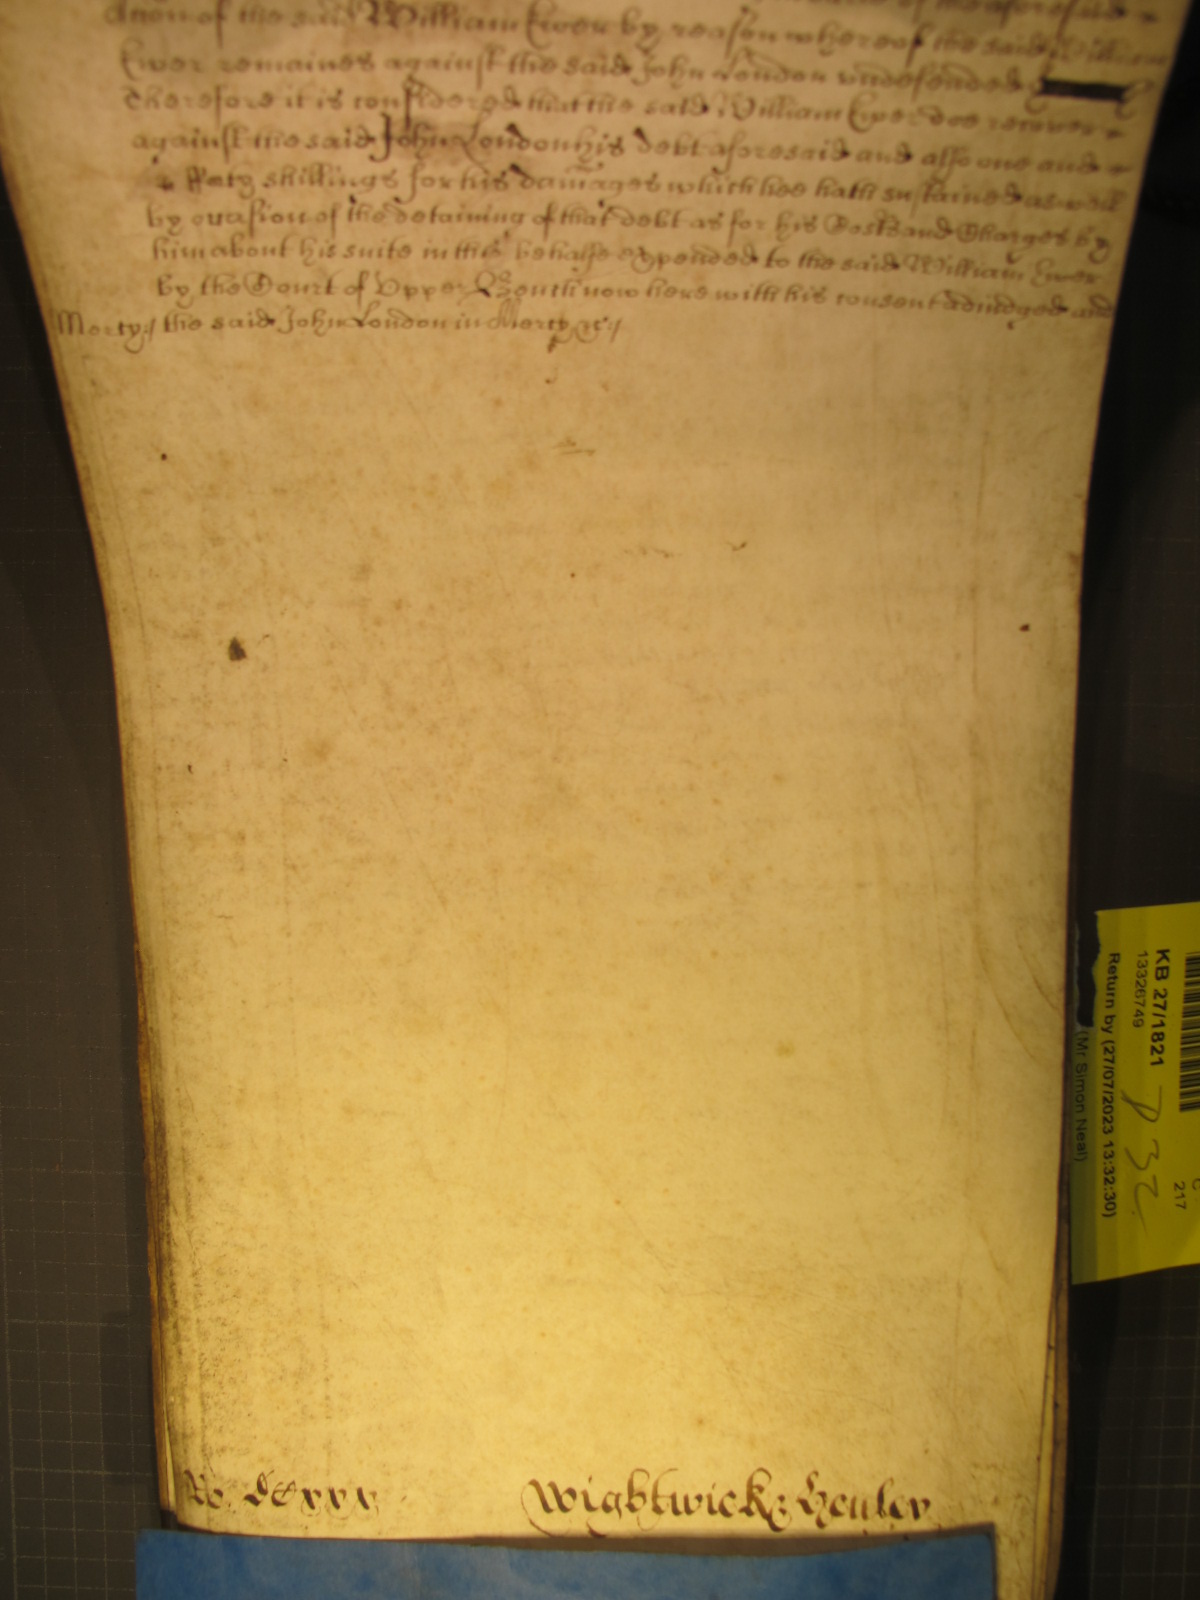 of the aforesaid
ation of the said William Ewer by reason whereof the said William
Ewer remaines against the said John London undefended
Therefore it is considered that the said William Ewer doe recover
against the said John London his debt aforesaid and alsoe one and
ffoty shillings for his damages which hee hath sustained as well
by occasion of the detaining of that debt as for his Costs and Charges by
him about his suite in this behalfe expended to the said William Ewer
by the Court of Upper Bench now here with his consent adiudged and
Mercy:/ the said John London in Mercy &c:/
Ro DCxxx
Wightwick: Henley
KB 27/1821
13326749
Return by (27/07/2023 13:32:30)
(Mr Simon Neal)
217